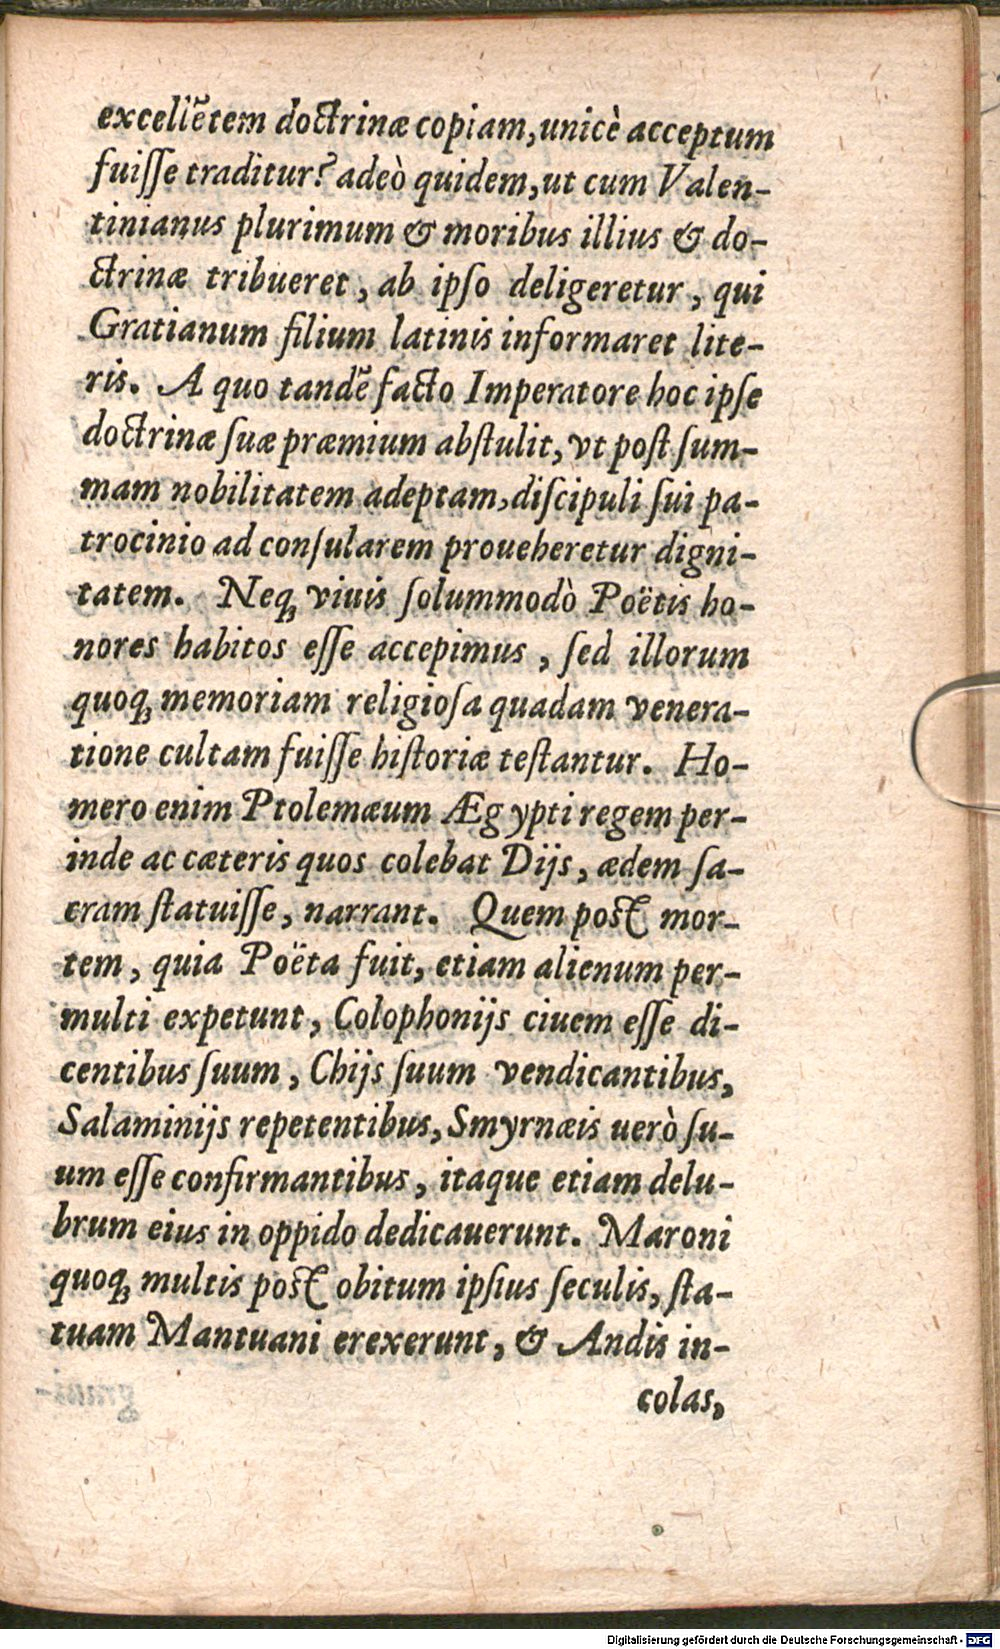 excellẽtem doctrinæ copiam, unicè acceptum
fuiſſe traditur? adeò quidem, ut cum Valen-
tinianus plurimum & moribus illius & do-
ctrinæ tribueret, ab ipſo deligeretur, qui
Gratianum filium latinis informaret lite-
ris. A quo tandẽ facto Imperatore hoc ipſe
doctrinæ ſuæ præmium abſtulit, vt poſt ſum-
mam nobilitatem adeptam, diſcipuli ſui pa-
trocinio ad conſularem proueheretur digni-
tatem. Neq; viuis ſolummodò Poëtis ho-
nores habitos eſſe accepimus, ſed illorum
quoq; memoriam religioſa quadam venera-
tione cultam fuiſſe hiſtoriæ teſtantur. Ho-
mero enim Ptolemæum Ægypti regem per-
inde ac cæteris quos colebat Dijs, ædem ſa-
cram ſtatuiſſe, narrant. Quem poſt mor-
tem, quia Poëta fuit, etiam alienum per-
multi expetunt, Colophonijs ciuem eſſe di-
centibus ſuum, Chijs ſuum vendicantibus,
Salaminijs repetentibus, Smyrnæis uerò ſu-
um eſſe confirmantibus, itaque etiam delu-
brum eius in oppido dedicauerunt. Maroni
quoq; multis poſt obitum ipſius ſeculis, ſta-
tuam Mantuani erexerunt, & Andis in-
colas,
Digitalisierung gefördert durch die Deutsche Forschungsgemeinschaft - DFG